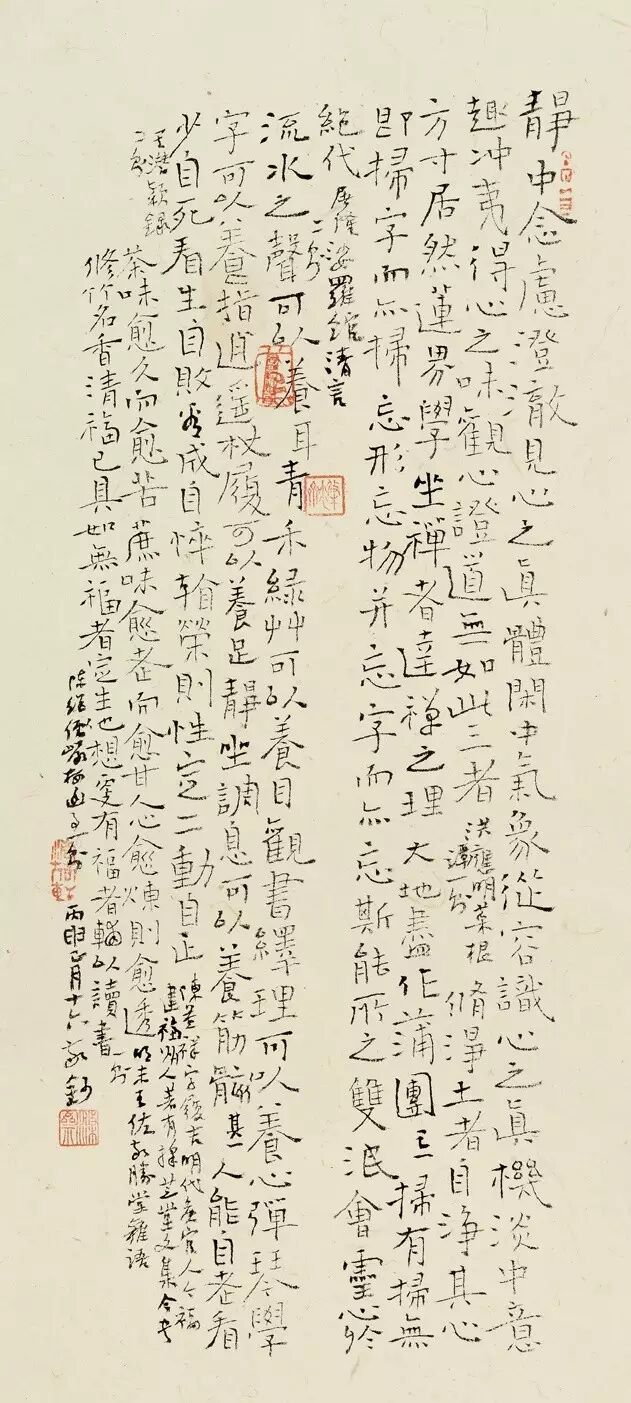 靜中念慮澄澈見心之真體閑中氣象從容識心之真機淡中意
趣冲夷得心之味觀心證道無如此三者
洪應明菜根
譚一則
脩淨土者自淨其心
方寸居然蓮界學坐禪者達禪之理大地盡作蒲團三掃有掃無
即掃字而亦掃忘形忘物并忘字而亦忘斯能所之雙泯會靈心於
絕代
屠隆娑羅館清言
二則
流水之聲可以養耳青禾綠艸可以養目觀書繹理可以養心彈琴學
字可以養指逍遥杖履可以養足靜坐調息可以養筋骸
其一
人能自老看
少自死看生自敗看成自悴看榮則性定二動自正
王潛穎錄
二則
茶味愈久而愈苦蔗味愈老而愈甘人心愈煉則愈透
明末王佐勝堂雜語
修竹名香清福已具如無福者定生他想更有福者輔以讀書
一則
丙申正月十六
鈔